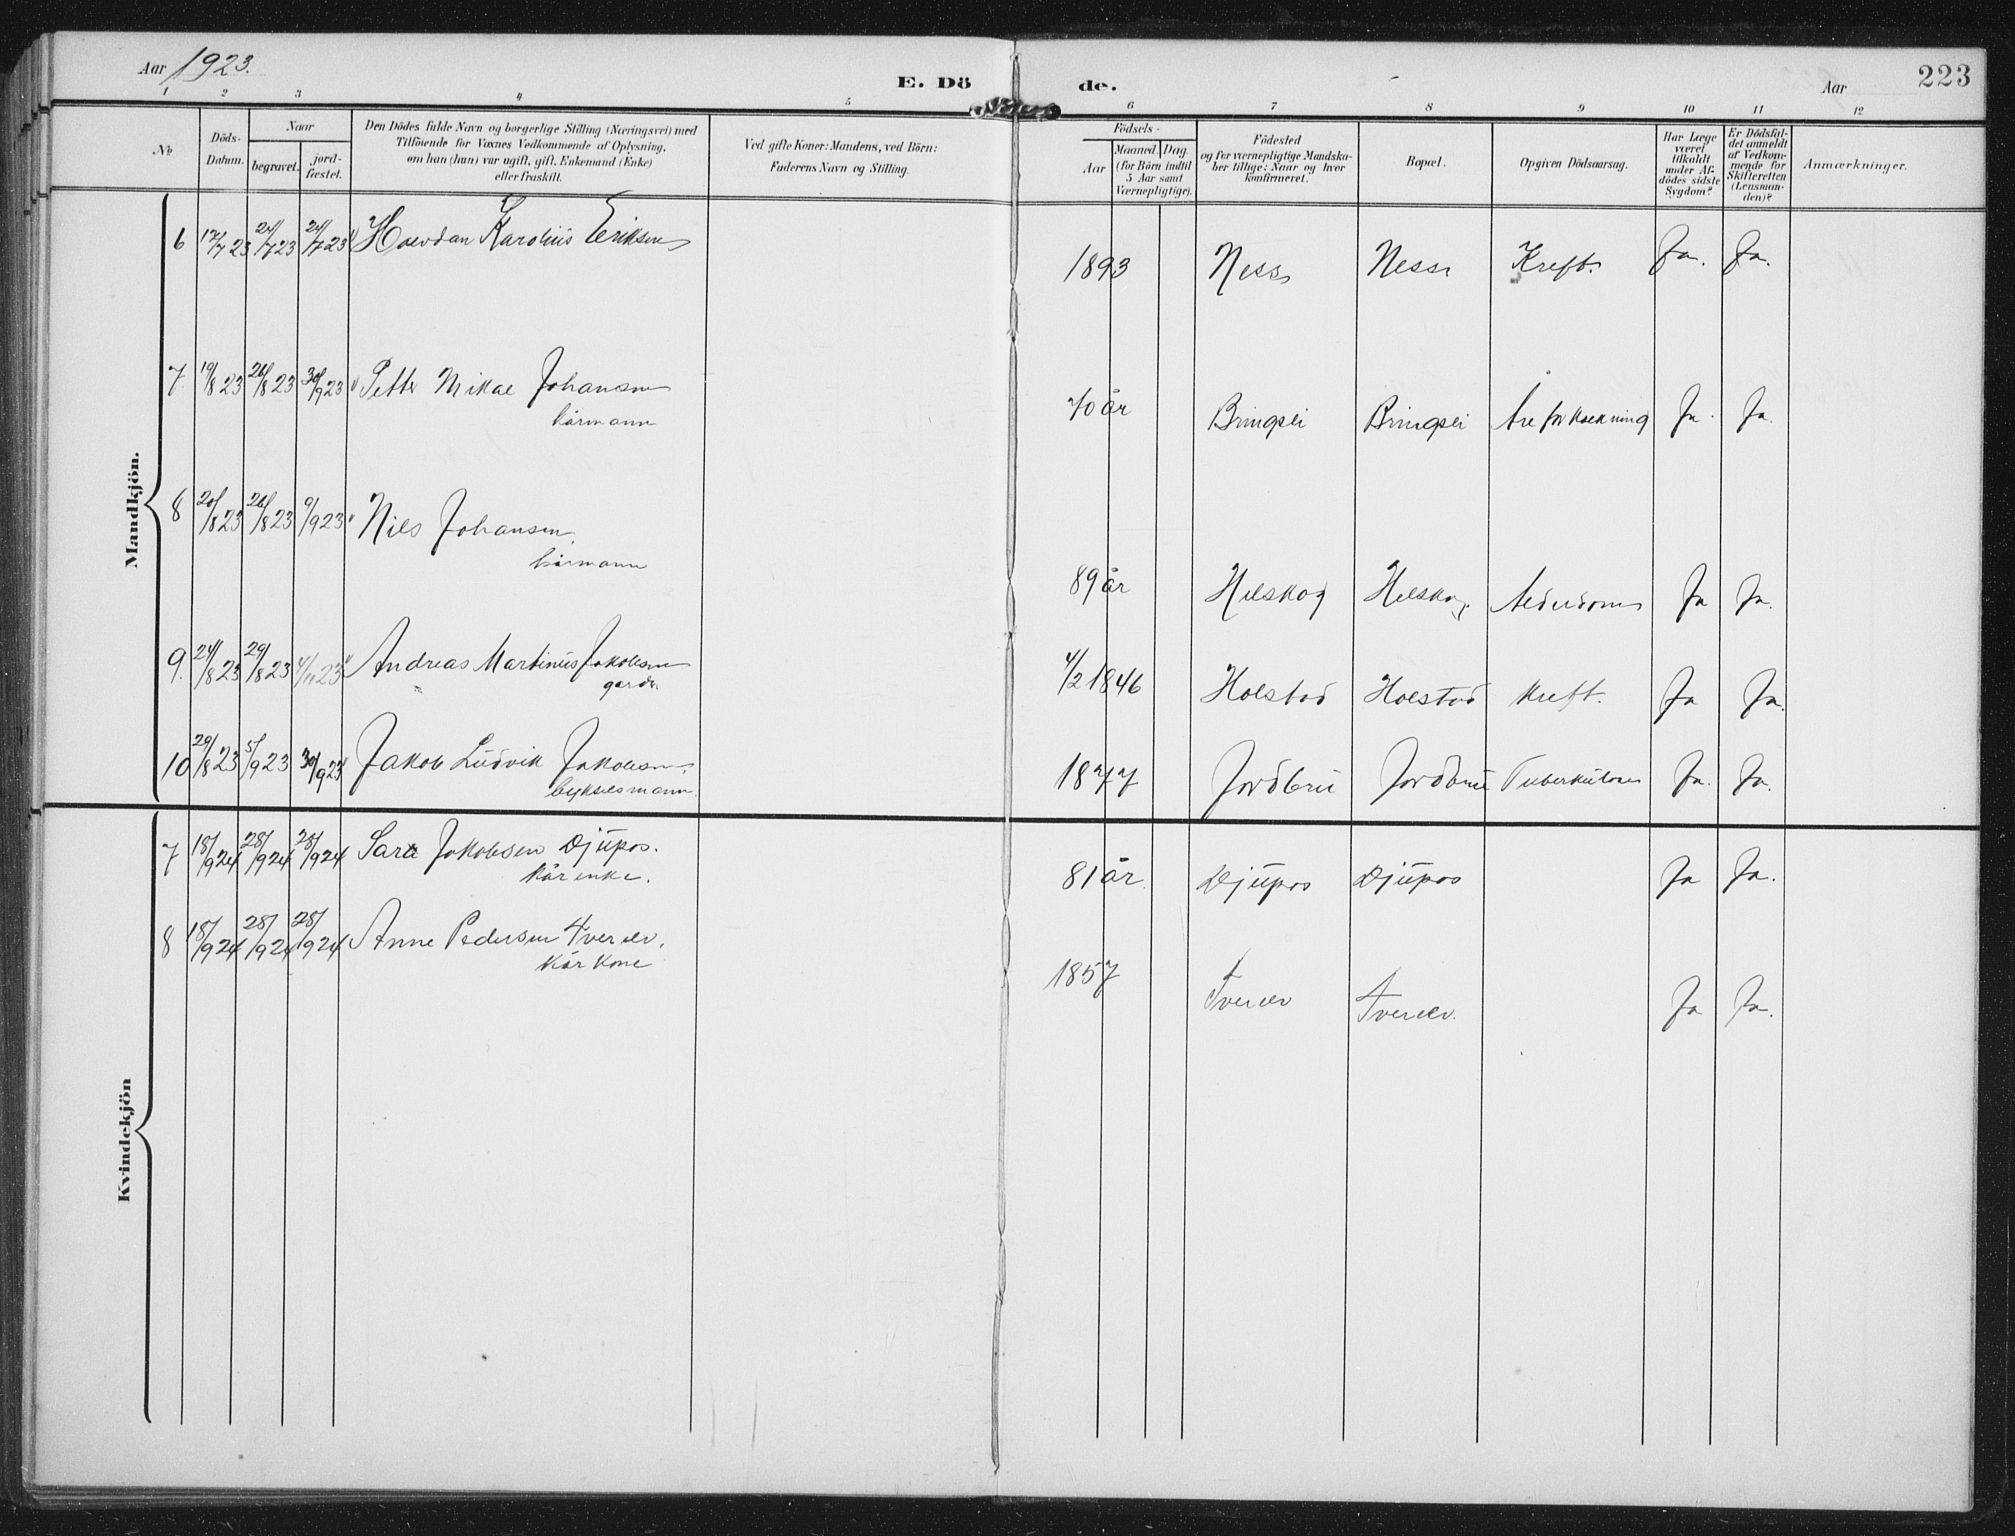 Aar 1923.
E. Döde.
Aar
223
1 2 3 4 5 6 7 8 9 10 11 12
№
Döds-Datum.
Naar
begravet.
jord-fæstet.
Den Dödes fulde Navn og borgerlige Stilling (Næringsvei) med
Tilföiende for Voxnes Vedkommende af Oplysning,
om han (hun) var ugift, gift, Enkemand (Enke)
eller fraskilt.
Ved gifte Koner: Mandens, ved Börn:
Faderens Navn og Stilling.
Födsels-
Aar
Maaned. Dag.
(for Börn indtil
5 Aar samt
Værnepligtige).
Födested
og for værnepligtige Mandska-
ber tillige: Naar og hvor
konfirmeret.
Bopæl.
Opgiven Dödsaarsag.
Har Læge
været
tilkaldt
under Af-
dödes sidste
Sygdom?
Er Dödsfal-
det anmeldt
af Vedkom-
mende for
Skifteretten
(Lensman-
den)?
Anmærkninger.
Mandkjön.
6 17/7 23 24/7 23 24/7 23 Halvdan Karolius Eriksen 1893 Ness Ness Kreft. Ja. Ja.
7. 19/8 23 26/8 23 30/9 23 Petter Mikal Johansen 70 år Bringsli Bringsli Åreforkalkning Ja. Ja.
kårmann
8 20/8 23 26/8 23 9/9 23 Nils Johansen 89 år Helskog Helskog Alderdom Ja Ja.
kårmann
9. 24/8 23 29/8 23 4/11 23 Andreas Martinus Jakobsen 4/2 1846 Holstad Holstad Kreft. Ja Ja.
gårdr.
10 29/8 23 5/9 23 30/9 23 Jakob Ludvik Jakobsen 1877 Jordbru Jordbru Tuberkulose Ja. Ja.
bykselsmann.
Kvindekjön
7 18/9 24 28/9 24 28/9 24 Sara Jakobsen Djupos. 81 år. Djupos Djupos Ja Ja.
kårenke.
8 18/9 24 28/9 24 28/9 24 Anne Pedersen Tverelv. 1857 Tverelv Tverelv. Ja Ja.
kårkone